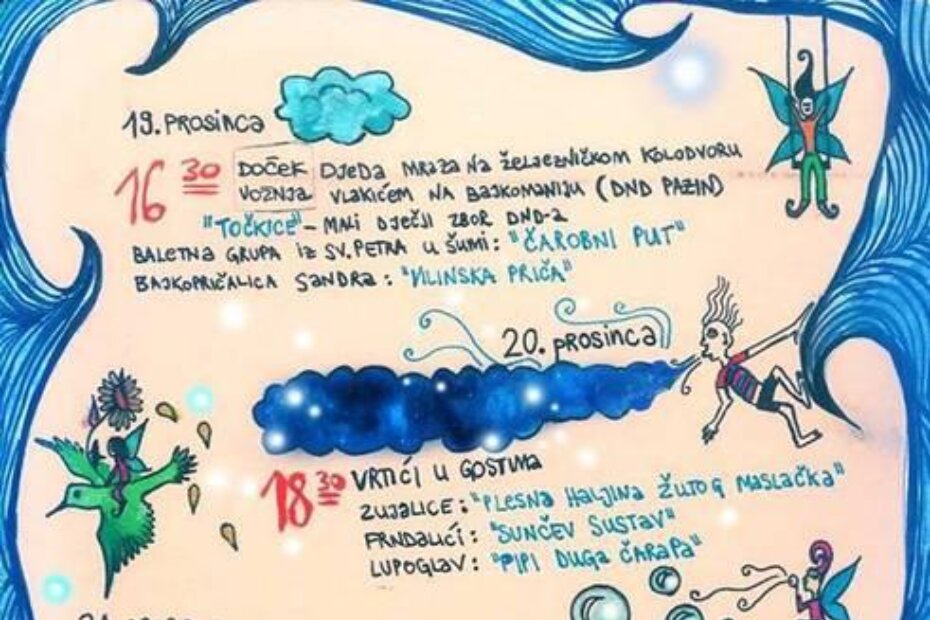 19. PROSINCA
16 30 DOČEK DJEDA MRAZA NA ŽELJEZNIČKOM KOLODVORU
VOŽNJA VLAKIĆEM NA BAJKOMANIJU (DND PAZIN)
"TOČKICE" – MALI DJEČJI ZBOR DND-a
BALETNA GRUPA IZ SV. PETRA U ŠUMI: "ČAROBNI PUT"
BAJKOPRIČALICA SANDRA: "VILINSKA PRIČA"
20. PROSINCA
18 30 VRTIĆI U GOSTIMA
ZUJALICE: "PLESNA HALJINA ŽUTOG MASLAČKA"
FRNDALIĆI: "SUNČEV SUSTAV"
LUPOGLAV: "PIPI DUGA ČARAPA"